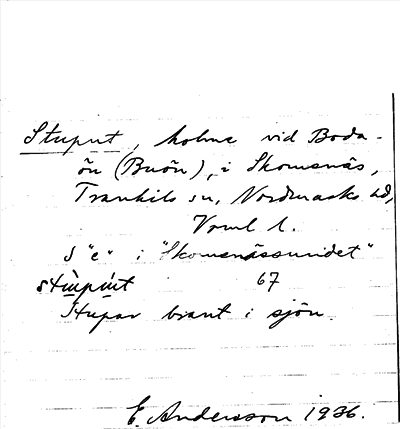 Stuput, holme vid Boda-
ön (Buön), i Skomenäs,
Trankils sn, Nordmarks hd,
Vrml l.
S "e" i "Skomenässundet"
stùpùt 67
Stupar brant i sjön.
E. Andersson 1936.